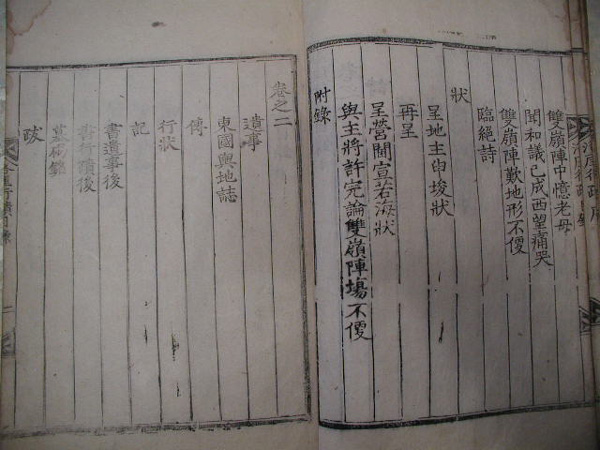 雙嶺陣中憶老母
聞和議已成西望痛哭
雙嶺陣歎地形不便
臨絕詩
狀
呈地主申埈狀
再呈
呈營閫宣若海狀
與主將許完論雙嶺陣塲不便
附錄
卷之二
遺事
東國輿地誌
傳
行狀
記
書遺事後
書行蹟後
墓碣銘
跋